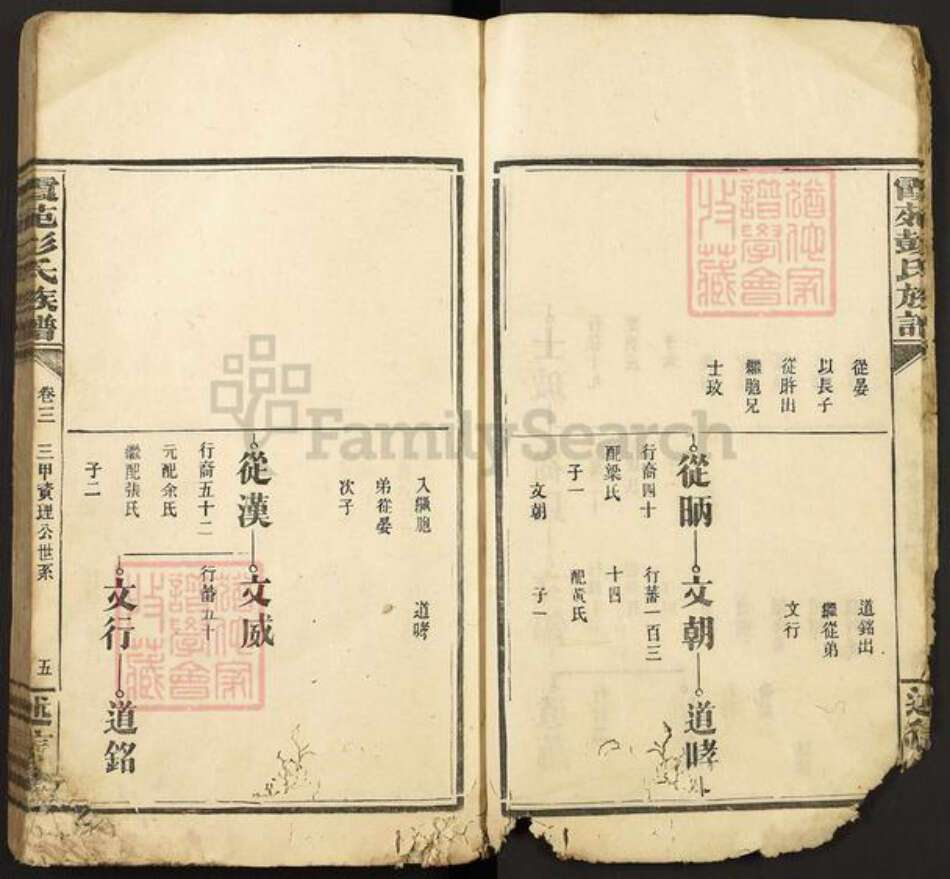 從晏
以長子
從時出
繼胞兄
士玟
從昞
行裔四十
配梁氏
子一
文朝
道銘出
繼從弟
文行
文朝
行蕃一百三
十四
配黃氏
子一
道哮
入繼胞
弟從晏
次子
道哮
從漢
行裔五十二
元配余氏
繼配張氏
子二
文威
行蕃五十
文行
道銘
霞苑彭氏族譜
卷三
三甲資理公世系
五
霞苑彭氏族譜
FamilySearch
譜學會
收藏
譜學會
收藏